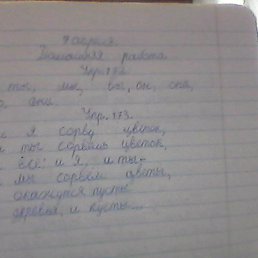 9 апреля.
Домашняя работа
Упр. 172
ты, мы, вы, он, она,
они.
Упр. 173.
я сорву цветок,
ты сорвёшь цветок,
все: и я, и ты-
мы сорвём цветы,
окажутся пусты
деревья, и кусты...